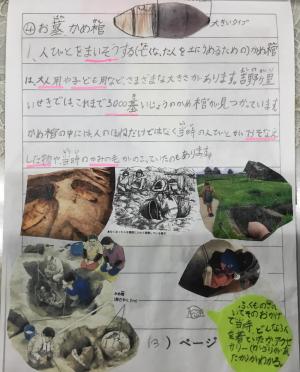 ④お墓 かめ棺
大きいタイプ
1、人びとをまいそうする(なくなった人を土にうめるための)かめ棺
は、大人用や子ども用など、さまざまな大きさがあります。吉野ヶ里
いせきでは、これまで3000基いじょうのかめ棺が見つかっています
かめ棺の中には人のほねだけではなく当時の人びとがおそなえ
した物や、当時のかみの毛がのこっていたのもあります。
(13) ページ
ふくものが
いて、そのおかげ
で当時、どんなふく
を着ていたか、アクセ
サリー
たかがわかる。